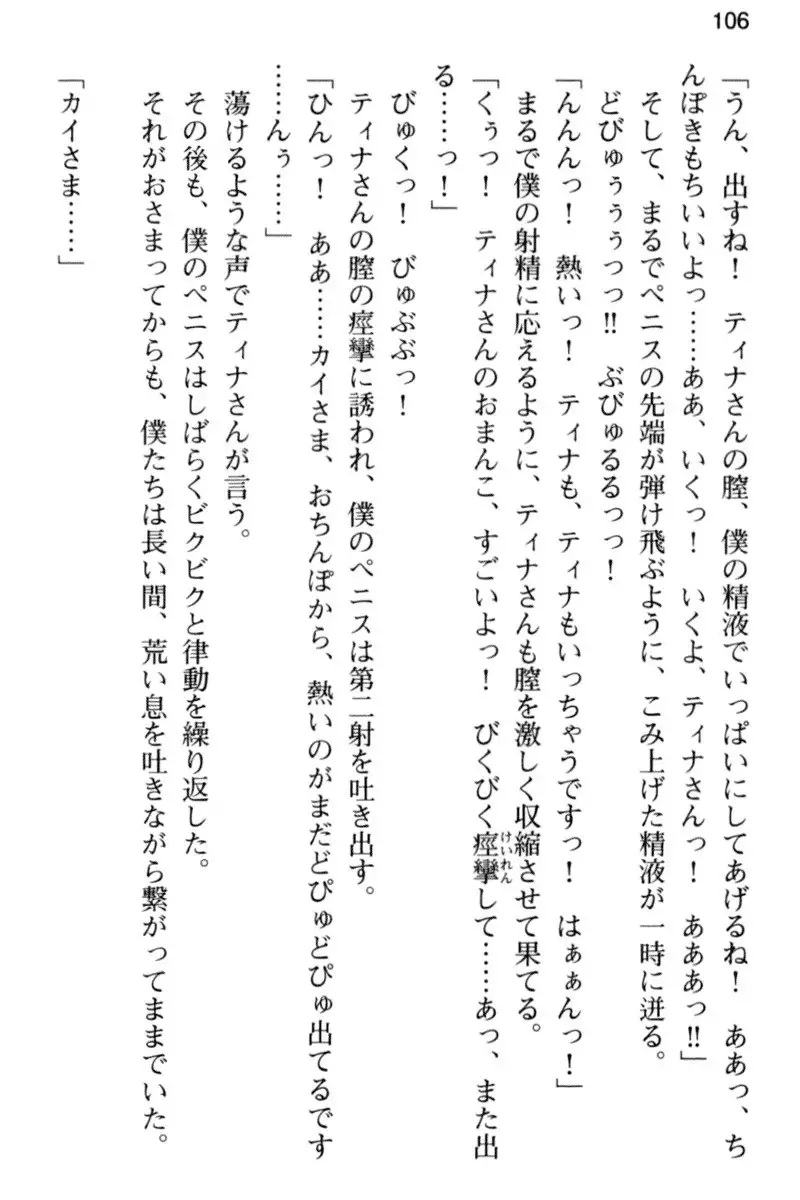 106
「うん、出すね！　ティナさんの膣、僕の精液でいっぱいにしてあげるね！　ああっ、ち
んぽきもちいいよっ……ああ、いくっ！　いくよ、ティナさんっ！　あああっ‼」
そして、まるでペニスの先端が弾け飛ぶように、こみ上げた精液が一時に迸る。
どびゅぅぅぅっっ‼　ぶびゅるるっっ！
「んんんっ！　熱いっ！　ティナも、ティナもいっちゃうですっ！　はぁぁんっ！」
まるで僕の射精に応えるように、ティナさんも膣を激しく収縮させて果てる。
「くぅっ！　ティナさんのおまんこ、すごいよっ！　びくびく痙攣けいれんして……あっ、また出
る……っ！」
びゅくっ！　びゅぶぶっ！
ティナさんの膣の痙攣に誘われ、僕のペニスは第二射を吐き出す。
「ひんっ！　ああ……カイさま、おちんぽから、熱いのがまだどぴゅどぴゅ出てるです
……んぅ……」
蕩けるような声でティナさんが言う。
その後も、僕のペニスはしばらくビクビクと律動を繰り返した。
それがおさまってからも、僕たちは長い間、荒い息を吐きながら繋がってままでいた。
「カイさま……」